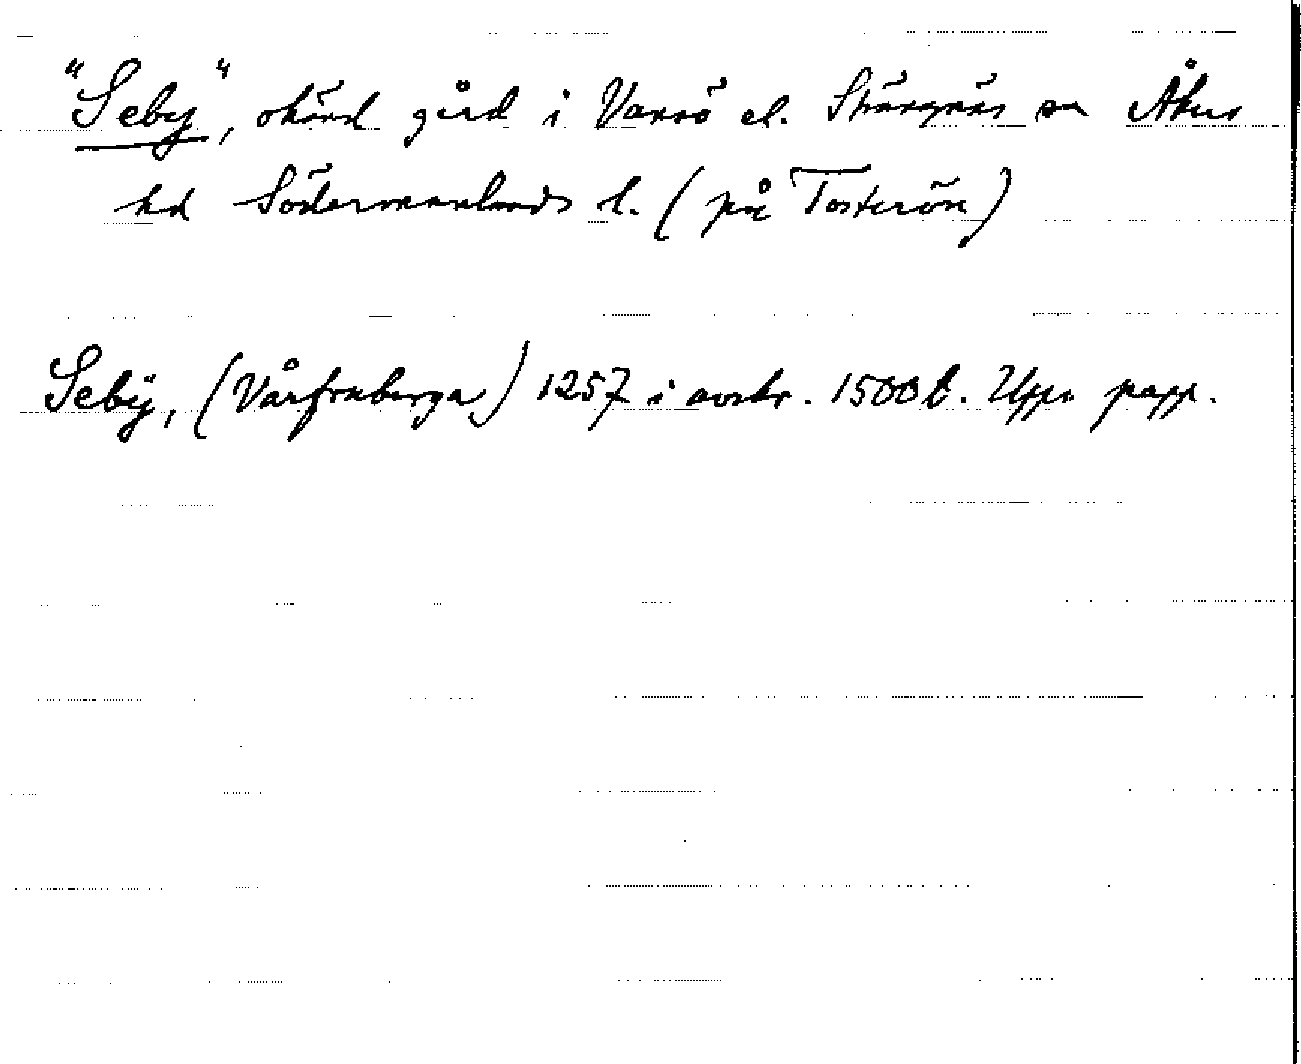 "Seby", okänd gård i Vansö el. Strängnäs sn Åkers
hd Södermanlands l. (på Tosterön)
Sebÿ, (Vårfruberga) 1257 i avskr. 1500 t. Upps papp.